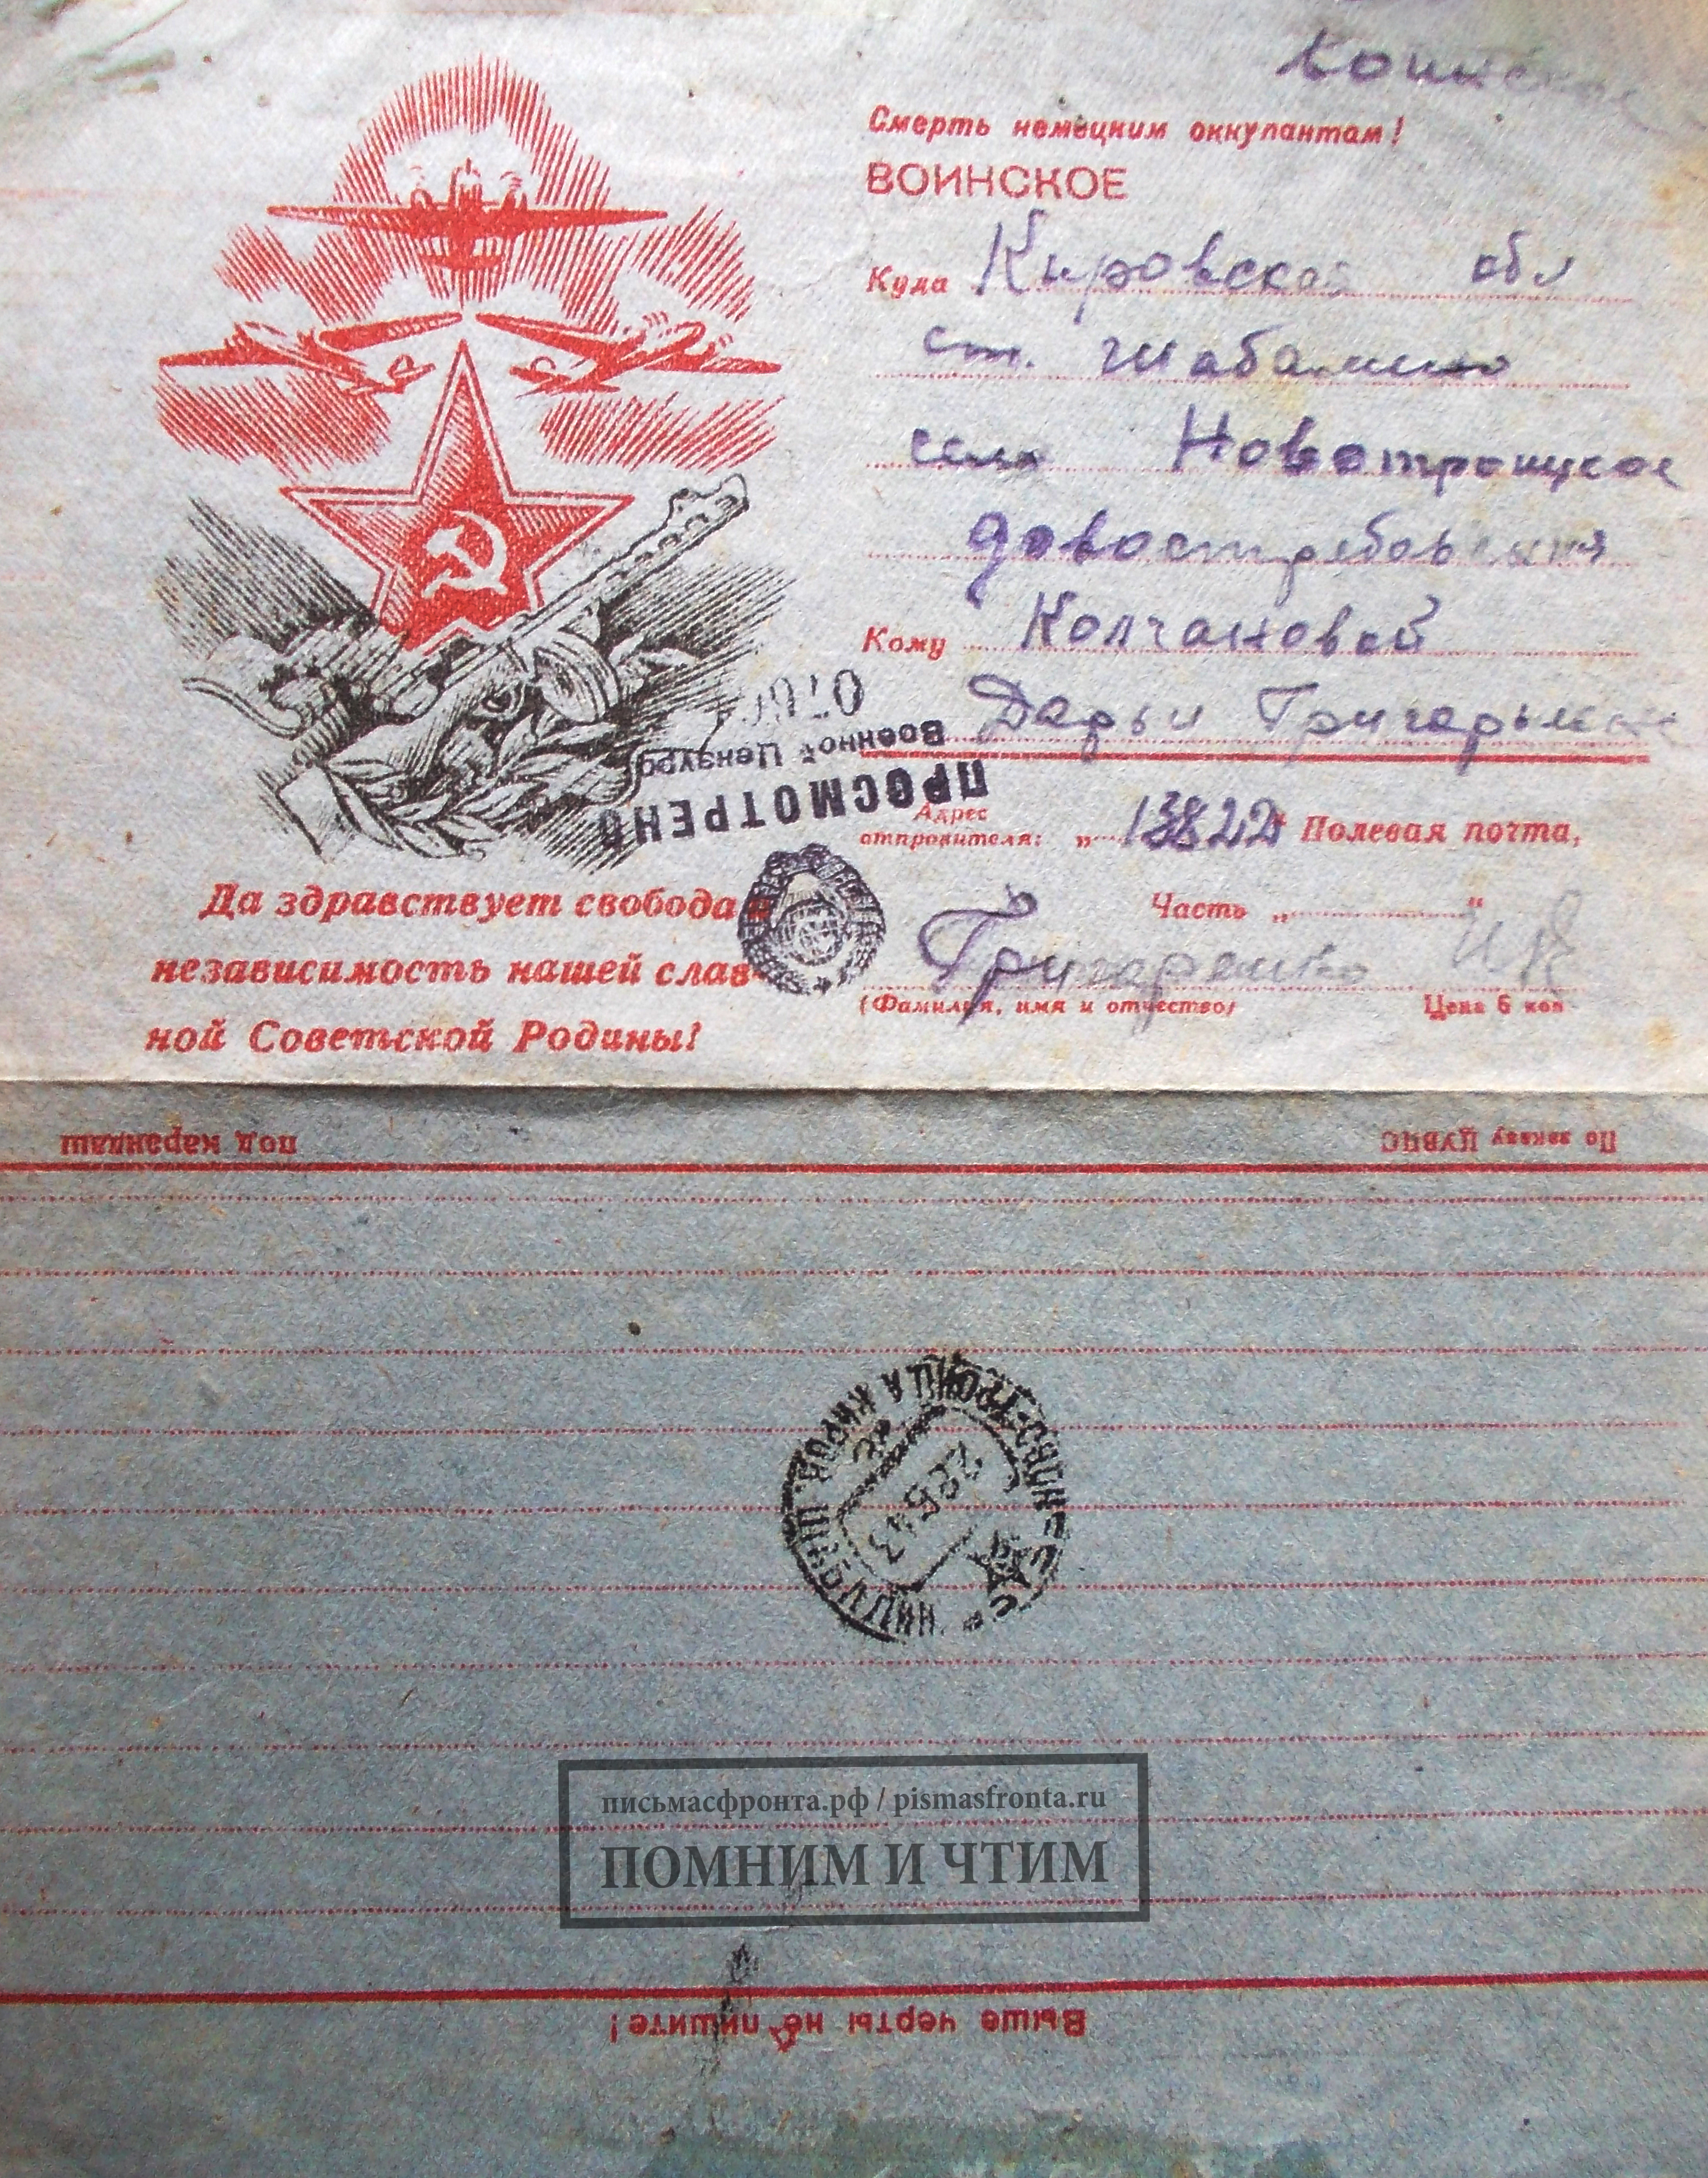 воинское
Смерть немецким оккупантам!
ВОИНСКОЕ
Куда Кировской обл
ст. Шабалино
село Новотроицкое
довостребования
Кому Колчановой
Дарьи
Военной Цензурой
ПРОСМОТРЕНО
Адрес
отправителя: „ 13822 " Полевая почта,
Да здравствует свобода и
независимость нашей слав-
ной Советской Родины!
Часть „ "
(Фамилия, имя и отчество) Цена 6 коп
под карандаш По заказу ЦУВПС
22 5 43
письмасфронта.рф / pismasfronta.ru
ПОМНИМ И ЧТИМ
Выше черты не пишите!